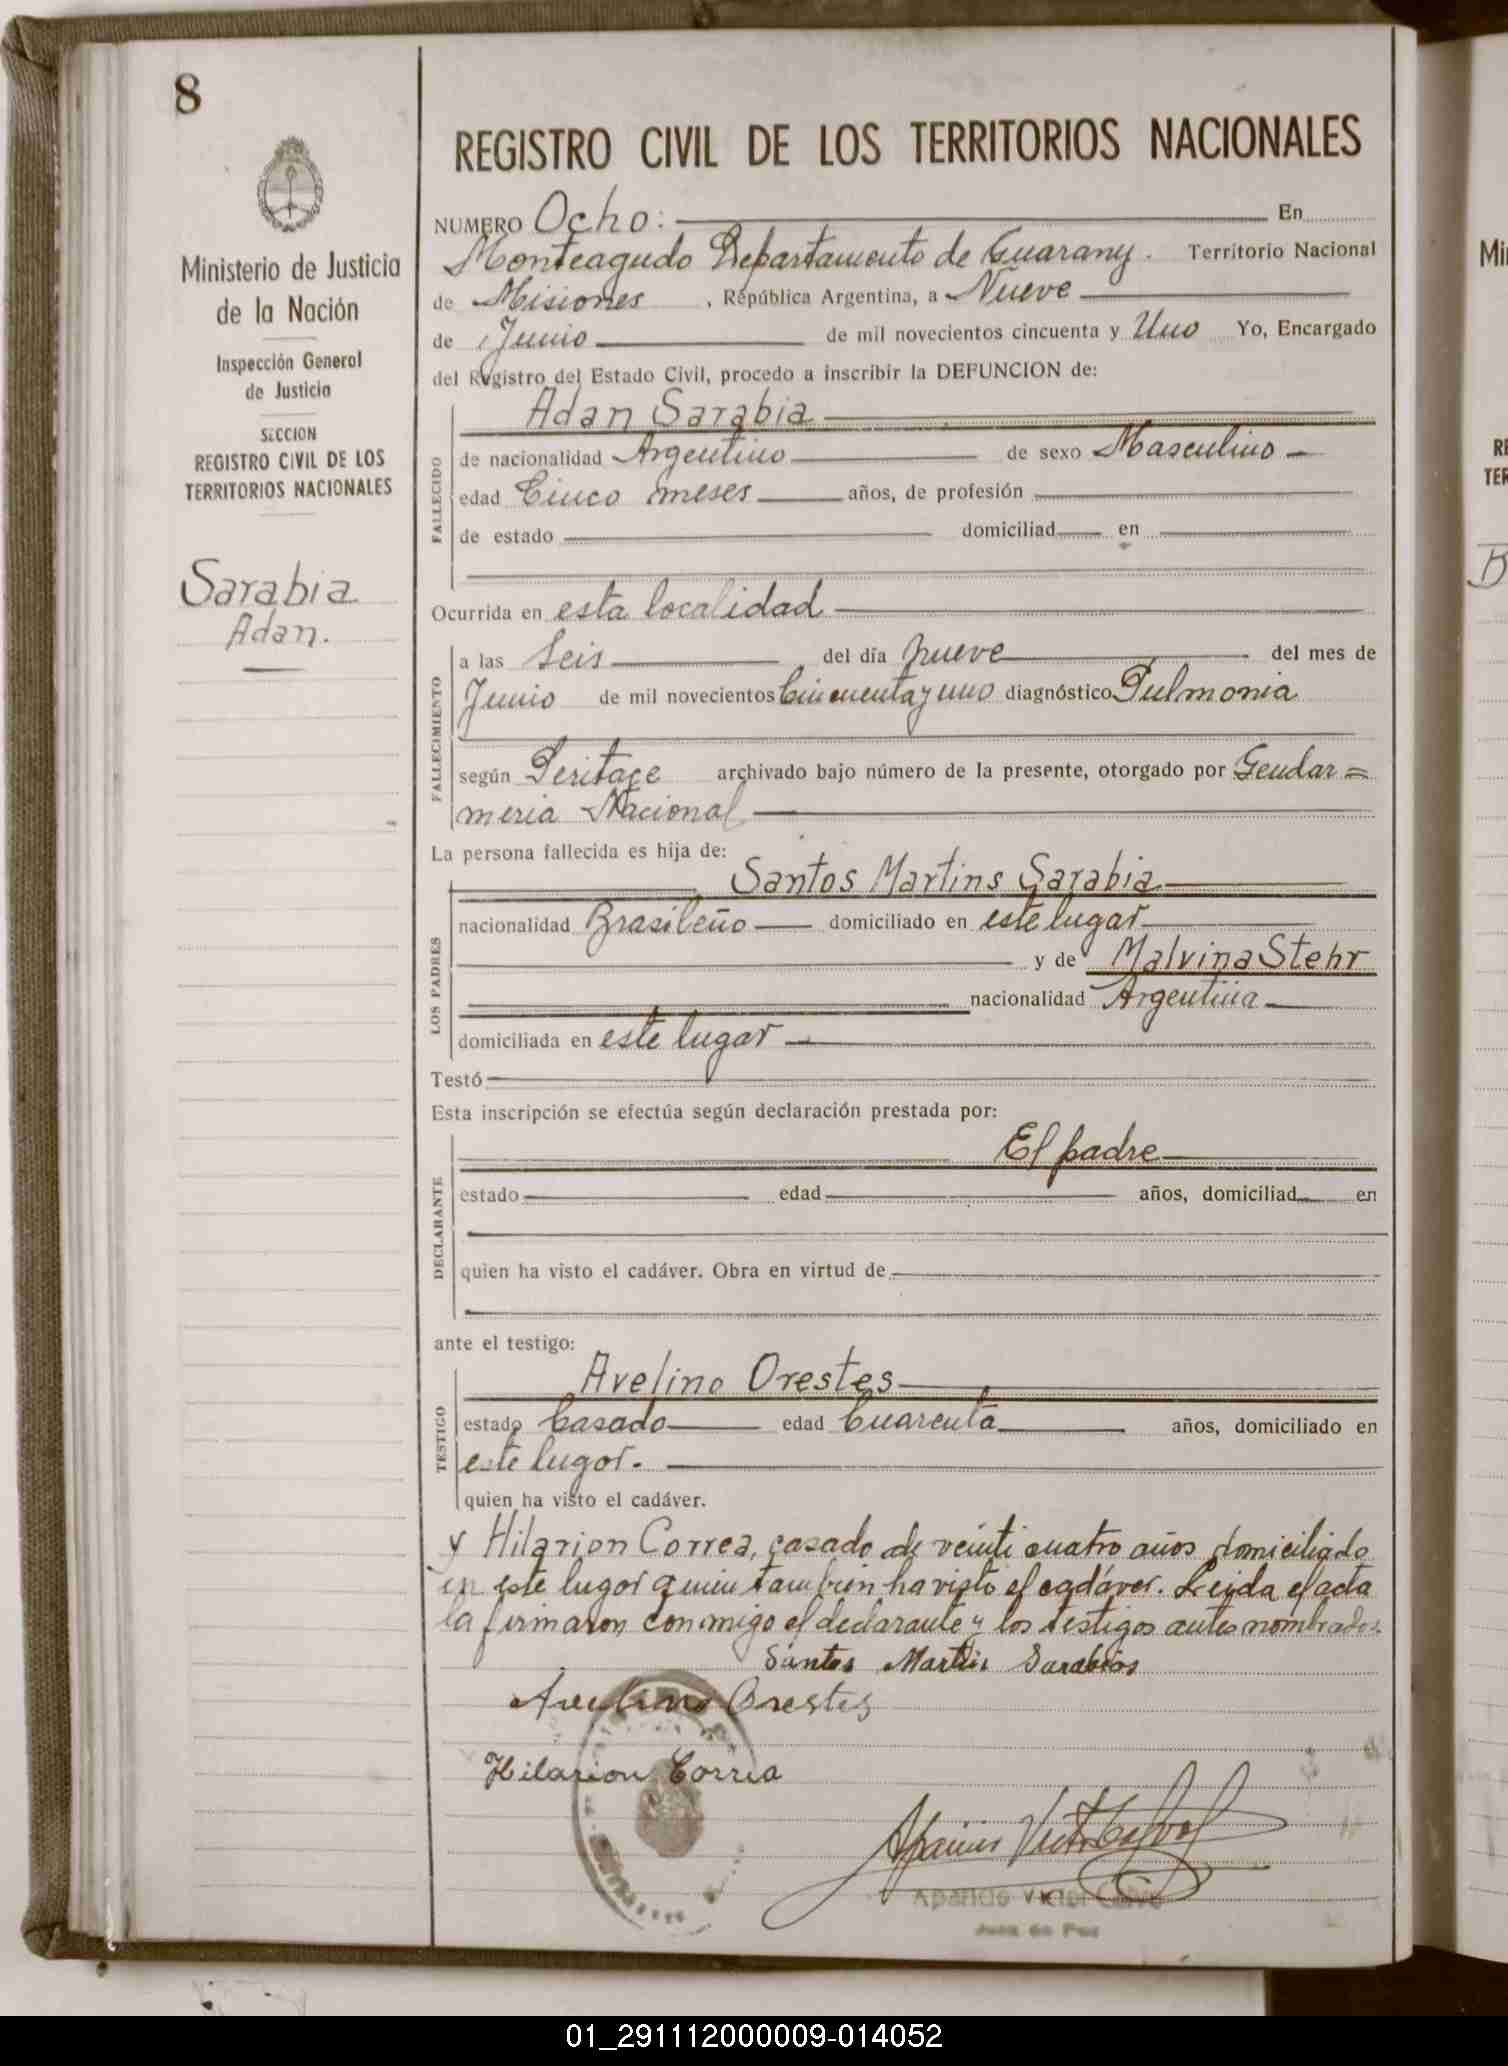 8
Ministerio de Justicia
de la Nación
Inspección General
de Justicia
SECCION
REGISTRO CIVIL DE LOS
TERRITORIOS NACIONALES
Sarabia
Adan.
REGISTRO CIVIL DE LOS TERRITORIOS NACIONALES
NUMERO Ocho: En
Monteagudo Departamento de Guarany. Territorio Nacional
de Misiones, República Argentina, a Nueve
de Junio de mil novecientos cincuenta y Uno Yo, Encargado
del Registro del Estado Civil, procedo a inscribir la DEFUNCION de:
Adan Sarabia
FALLECIDO
de nacionalidad Argentino de sexo Masculino
edad Cinco meses años, de profesión
de estado domiciliad en
Ocurrida en esta localidad
FALLECIMIENTO
a las Seis del día nueve del mes de
Junio de mil novecientos Cincuenta y uno diagnóstico Pulmonia
según Peritage archivado bajo número de la presente, otorgado por Gendar=
meria Nacional
La persona fallecida es hija de:
Santos Martins Sarabia
LOS PADRES
nacionalidad Brasileño domiciliado en este lugar
y de Malvina Stehr
nacionalidad Argentina
domiciliada en este lugar
Testó
Esta inscripción se efectúa según declaración prestada por:
El padre
DECLARANTE
estado edad años, domiciliad en
quien ha visto el cadáver. Obra en virtud de
ante el testigo:
Avelino Orestes
TESTIGO
estado Casado edad Cuarenta años, domiciliado en
este lugar.
quien ha visto el cadáver.
y Hilarion Correa, casado de veinti cuatro años domiciliado
en este lugar quien tambien ha visto el cadáver. Leida el acta
la firmaron conmigo el declarante y los testigos antes nombrados.
Santos Martin Sarabios
Avelino Orestes
Hilarion Correa
Aparicio Victor Calvo
Juez de Paz
Mi
RE
TER
B
01_291112000009-014052